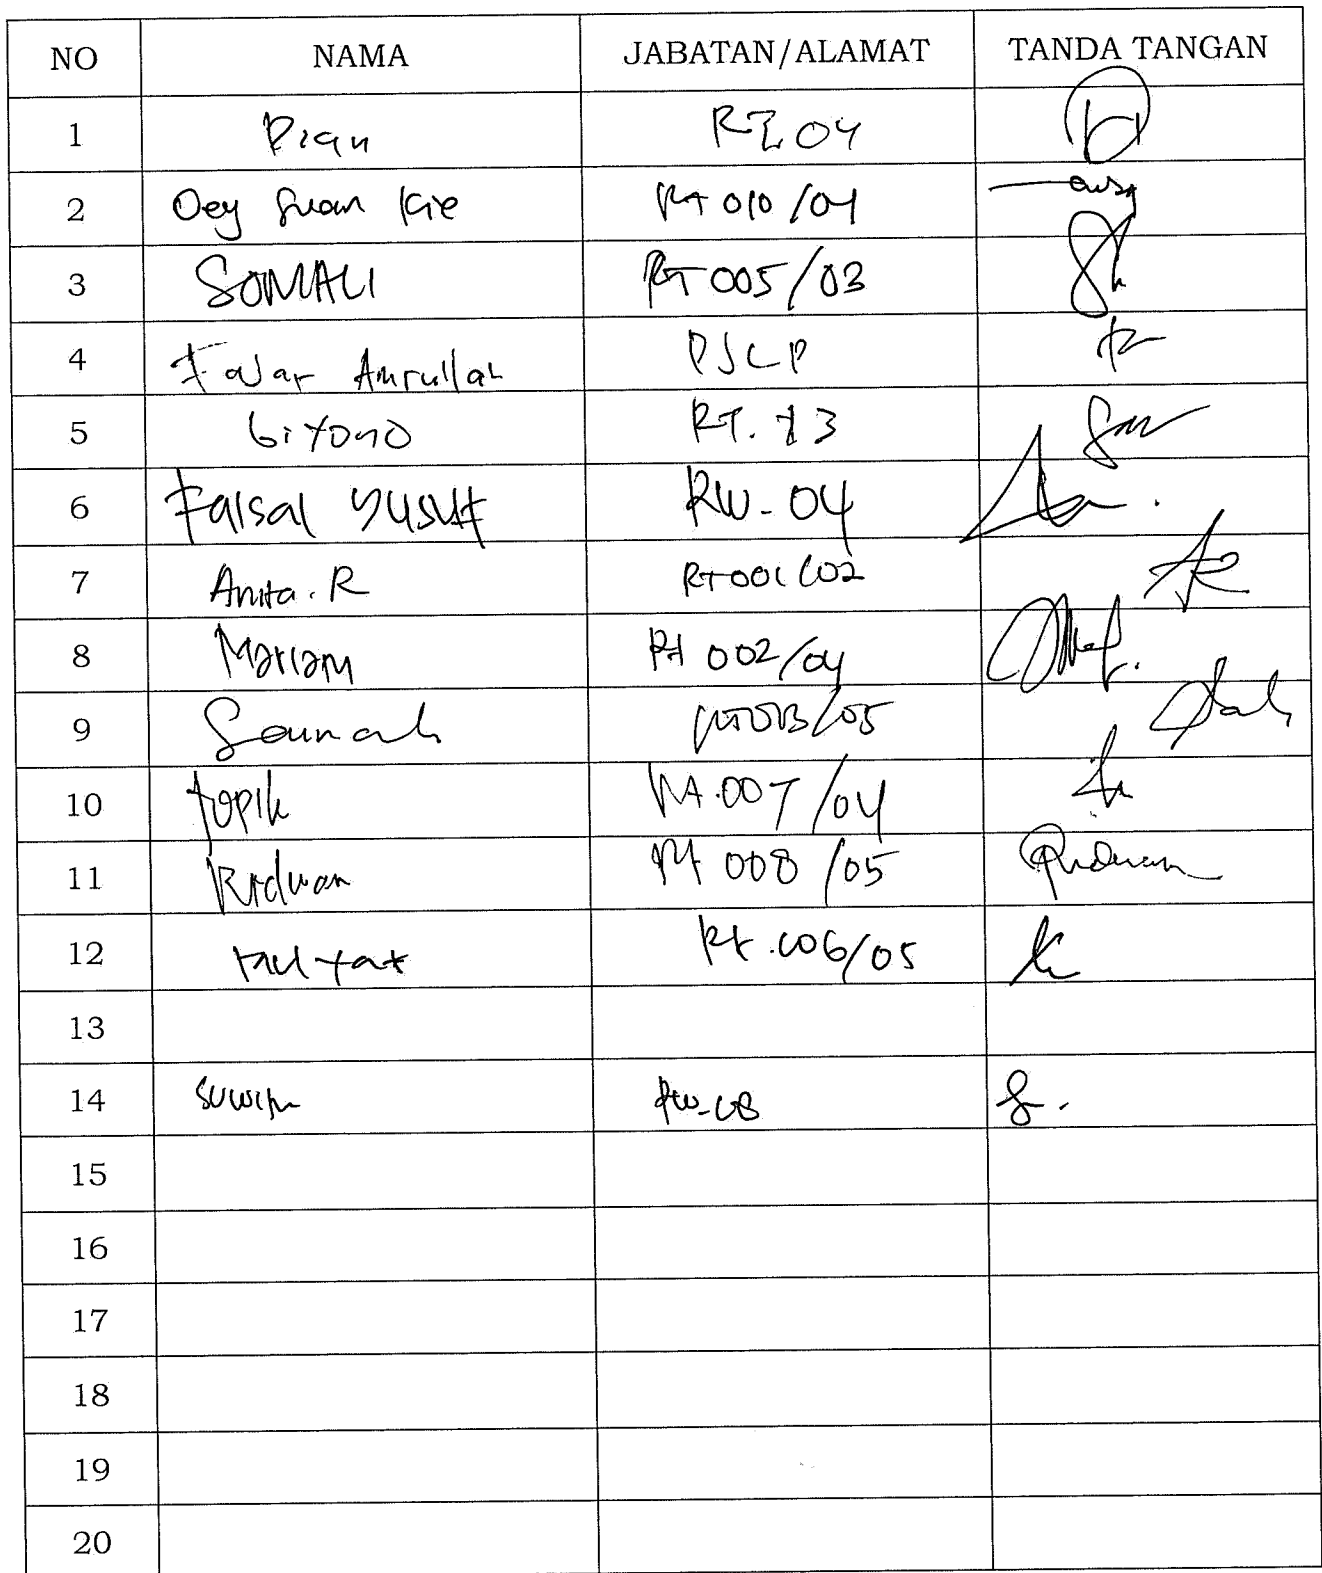 NO NAMA JABATAN/ALAMAT TANDA TANGAN
1 Dian RT.04
2 Oey Suan Kie RT 010/04
3 SOMALI RT 005/03
4 Fajar Amrullah PJLP
5 Giyono RT. 13
6 Faisal Yusuf RW. 04
7 Anita.R RT001/02
8 Mariam Rt 002/04
9 Saunah 05
10 Topik Rt.007/04
11 Ridwan Rt 008/05 Ridwan
12 Rt.006/05
13
14 Rw-08
15
16
17
18
19
20